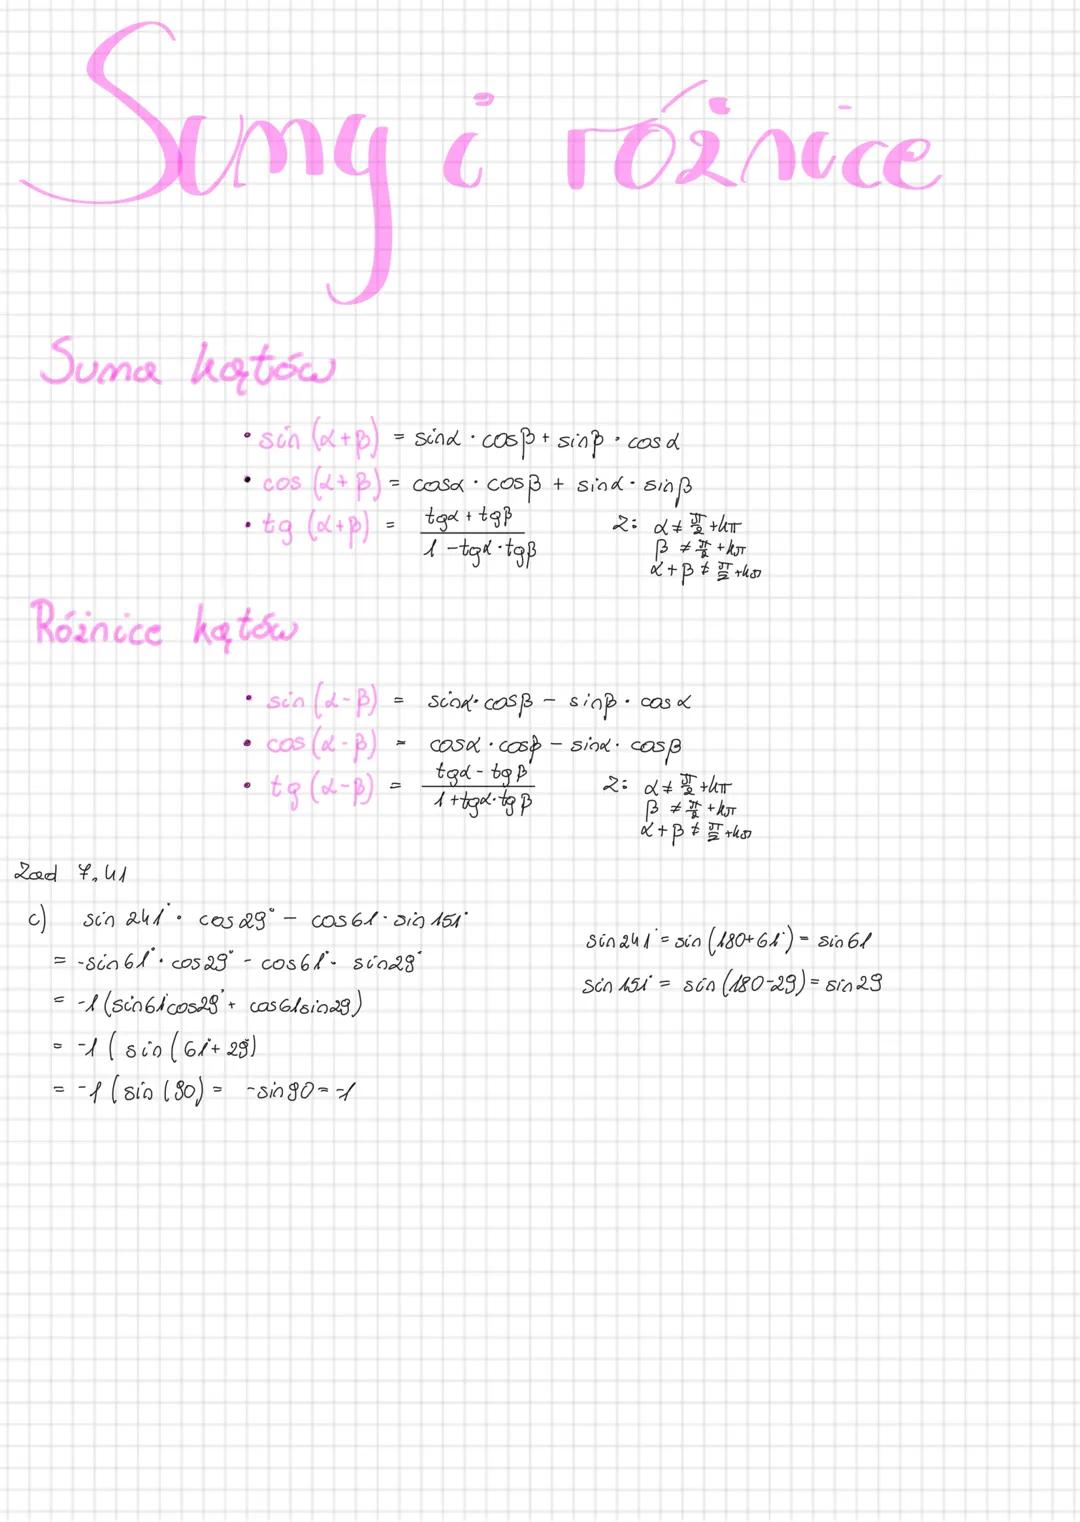 Sumy i różnice
Suma kątów
• sin (α+β) = sinα · cosβ + sinβ · cosα
• cos (α+β) = cosα · cosβ + sinα · sinβ
• tg (α+β) = (tgα + tgβ)/(1 - tgα · tgβ) Z: α ≠ π/2 + kπ
β ≠ π/2 + kπ
α + β ≠ π/2 + kπ
Różnice kątów
• sin (α-β) = sinα · cosβ - sinβ · cosα
• cos (α-β) = cosα · cosβ - sinα · cosβ
• tg (α-β) = (tgα - tgβ)/(1 + tgα · tgβ) Z: α ≠ π/2 + kπ
β ≠ π/2 + kπ
α + β ≠ π/2 + kπ
Zad 7.41
c) sin 241° · cos 29° - cos 61 · sin 151°
= -sin 61° · cos 29° - cos 61° · sin 29°
= -1 (sin 61° cos 29° + cos 61 sin 29)
= -1 ( sin (61° + 29)
= -1 (sin (90) = -sin 90 = -1
sin 241° = sin (180 + 61°) = sin 61
sin 151° = sin (180-29) = sin 29